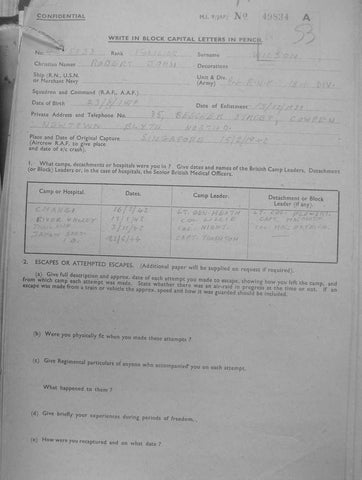 CONFIDENTIAL M.I. 9/JAP/ No 49834 A
53
WRITE IN BLOCK CAPITAL LETTERS IN PENCIL.
No. Rank FUSILIER Surname WILSON
Christian Names ROBERT Decorations
Ship (R.N., U.S.N. or Merchant Navy) Unit & Div. (Army) DIV.
Squadron and Command (R.A.F., A.A.F.)
Date of Birth Date of Enlistment
Private Address and Telephone No. 35, STREET, COWPEN
NEWTOWN BLYTH
Place and Date of Original Capture SINGAPORE 15/2/1942
(Aircrew R.A.F. to give place
and date of a/c crash).
1. What camps, detachments or hospitals were you in ? Give dates and names of the British Camp Leaders, Detachment
(or Block) Leaders or, in case of hospitals, the Senior British Medical Officers.
Camp or Hospital. Dates. Camp Leader. Detachment or Block Leader (if any).
CHANGI LT. GEN HEATH LT. COL.
RIVER VALLEY COL. CAPT.
COL. COL.
CAPT.
2. ESCAPES OR ATTEMPTED ESCAPES. (Additional paper will be supplied on request if required).
(a) Give full description and approx. date of each attempt you made to escape, showing how you left the camp, and
from which camp each attempt was made. State whether there was an air-raid in progress at the time or not. If an
escape was made from a train or vehicle the approx. speed and how it was guarded should be included.
(b) Were you physically fit when you made these attempts ?
(c) Give Regimental particulars of anyone who accompanied you on each attempt.
What happened to them ?
(d) Give briefly your experiences during periods of freedom.
(e) How were you recaptured and on what date ?